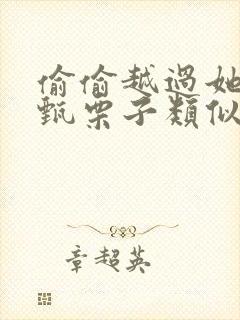 偷偷越過她
甄栗子類似
章超英